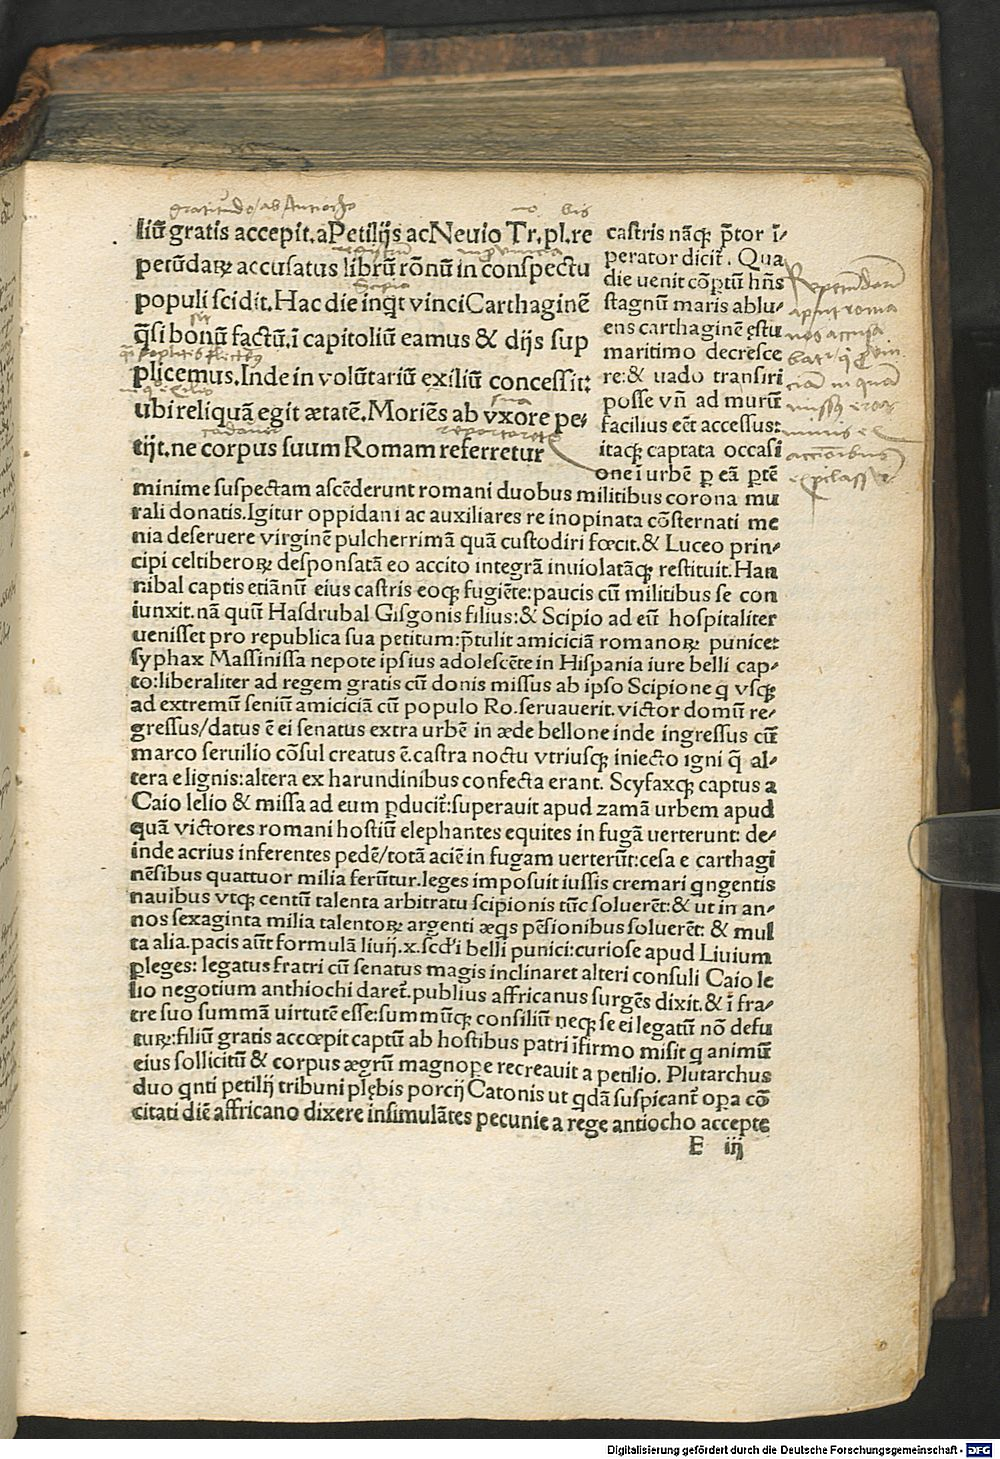 liū gratis accepit. a Petilijs ac Neuio Tr. pl. re
petūdaꝝ accusatus librū rōnū in conspectu
populi scidit. Hac die inqͭ vinci Carthaginē
q̄si bonū factū. ī capitoliū eamus & dijs sup
plicemus. Inde in volūtariū exiliū concessit:
ubi reliquā egit ætatē. Moriēs ab vxore pe⸗
tijt. ne corpus suum Romam referretur
castris nāqꝫ p̄tor ī⸗
perator dicit᷑. Qua
die uenit cōptū hn̄s
stagnū maris ablu⸗
ens carthaginē ęstu
maritimo decresce
re: & uado transiri
posse vn̄ ad murū
facilius eēt accessus:
itaqꝫ captata occasi
one ī urbē ꝑ eā ꝑtē
minime suspectam ascēderunt romani duobus militibus corona mu
rali donatis. Igitur oppidani ac auxiliares re inopinata cōsternati me
nia deseruere virginē pulcherrimā quā custodiri fœcit. & Luceo prin⸗
cipi celtiberoꝝ desponsatā eo accito integrā inuiolatāqꝫ restituit. Han
nibal captis etiānū eius castris eoqꝫ fugiēte: paucis cū militibus se con
iunxit. nā quū Hasdrubal Gisgonis filius: & Scipio ad eū hospitaliter
uenisset pro republica sua petitum: p̄tulit amiciciā romanoꝝ punice:
syphax Massinissa nepote ipsius adolescēte in Hispania iure belli cap⸗
to: liberaliter ad regem gratis cū donis missus ab ipso Scipione q vsqꝫ
ad extremū seniū amiciciā cū populo Ro. seruauerit. victor domū re⸗
gressus/datus ē ei senatus extra urbē in æde bellone inde ingressus cū
marco seruilio cōsul creatus ē. castra noctu vtriusqꝫ iniecto igni q̄ al⸗
tera e lignis: altera ex harundinibus confecta erant. Scyfaxqꝫ captus a
Caio lelio & missa ad eum ꝑducit᷑: superauit apud zamā urbem apud
quā victores romani hostiū elephantes equites in fugā uerterunt: de⸗
inde acrius inferentes pedē/totā aciē in fugam uerterūt: cesa e carthagi
nēsibus quattuor milia ferūtur. leges imposuit iussis cremari qngentis
nauibus vtqꝫ centū talenta arbitratu scipionis tūc soluerēt: & ut in an⸗
nos sexaginta milia talentoꝝ argenti æqs pēsionibus soluerēt: & mul
ta alia. pacis aūt formulā liuij. x. scďi belli punici: curiose apud Liuium
ꝑleges: legatus fratri cū senatus magis inclinaret alteri consuli Caio le
lio negotium anthiochi daret᷑. publius affricanus surgēs dixit. & ī fra⸗
tre suo summā virtutē esse: summūqꝫ consiliū neqꝫ se ei legatū nō defu
tuꝝ: filiū gratis accœpit captū ab hostibus patri īfirmo misit q animū
eius sollicitū & corpus ægrū magnope recreauit a petilio. Plutarchus
duo qnti petilij tribuni plębis porcij Catonis ut qdā suspicant᷑ oꝑa cō
citati diē affricano dixere insimulātes pecunie a rege antiocho accepte
E iij
Digitalisierung gefördert durch die Deutsche Forschungsgemeinschaft - DFG